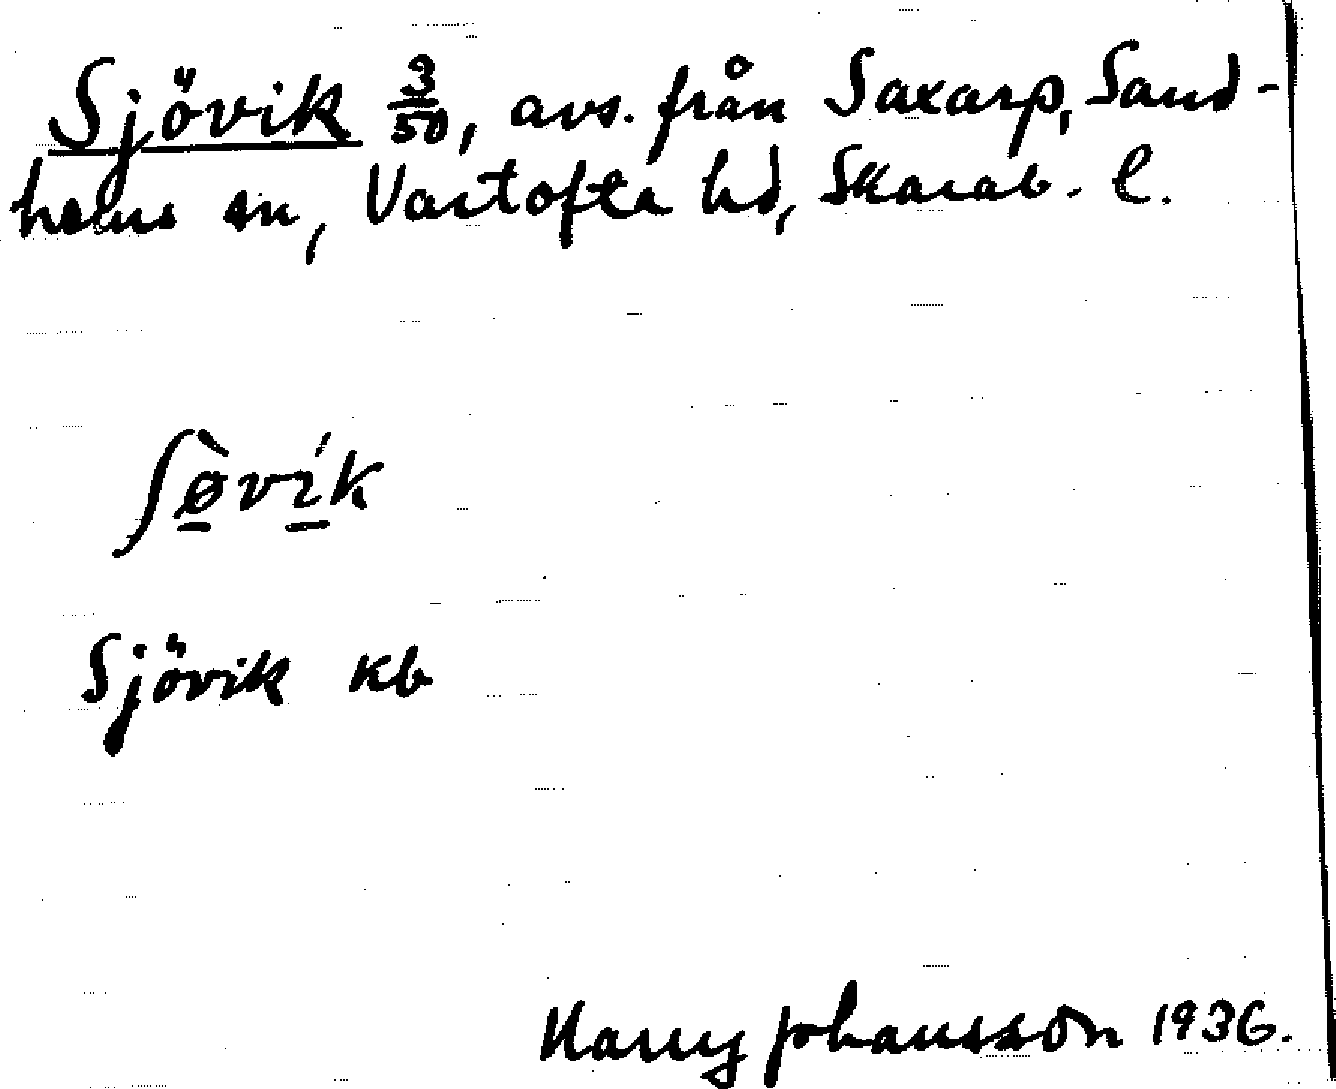 Sjövik 3/50, avs. från Saxarp, Sand-
hems sn, Vartofta hd, Skarab. l.
ʃø̠̀ví̠k
Sjövik kb
Harry Johansson 1936.